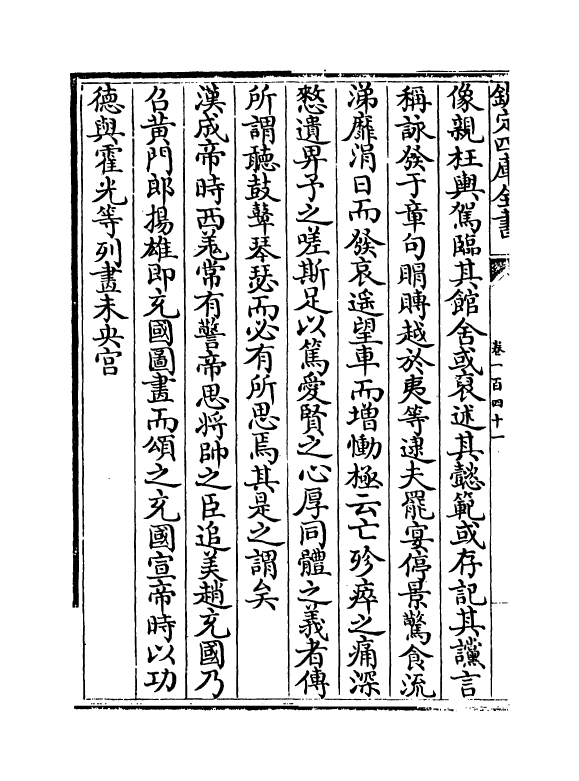 欽定四庫全書
卷一百四十一
像親枉輿駕臨其館舍或裒述其懿範或存記其讜言
稱詠發于章句賵賻越於夷等逮夫罷宴停景驚食流
涕靡涓日而發哀遥望車而増慟極云亡殄瘁之痛深
慭遺畀予之嗟斯足以篤愛賢之心厚同體之義者傳
所謂聽鼓鼙琴瑟而必有所思焉其是之謂矣
漢成帝時西羌常有警帝思將帥之臣追美趙充國乃
召黄門郎揚雄即充國圖畫而頌之充國宣帝時以功
德與霍光等列畫未央宫